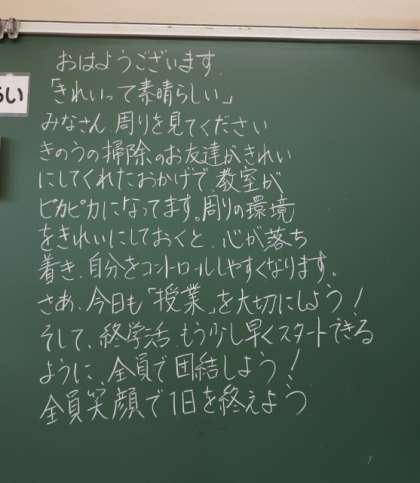 おはようございます
「きれいって素晴らしい」
みなさん 周りを見てください
きのうの掃除のお友達がきれい
にしてくれたおかげで、教室が
ピカピカになってます。周りの環境
をきれいにしておくと、心が落ち
着き、自分をコントロールしやすくなります。
さあ、今日も「授業」を大切にしよう！
そして、終学活 もう少し早くスタートできる
ように、全員で団結しよう！
全員笑顔で1日を終えよう
らい